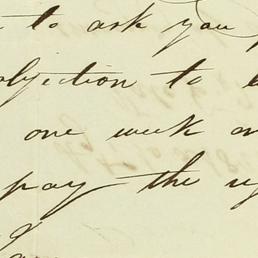 to ask you
objection to
one week
pay the